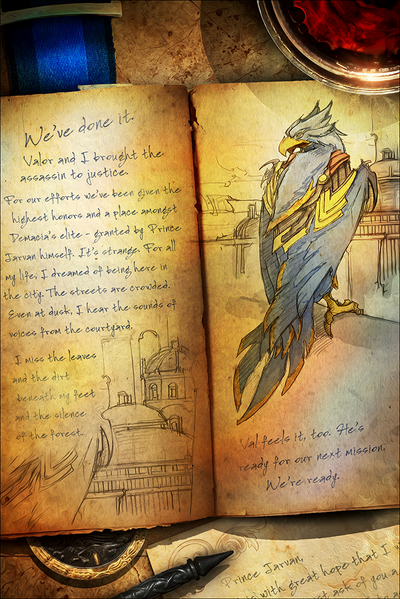 We've done it.
Valor and I brought the
assassin to justice.
For our efforts we've been given the
highest honors and a place amongst
Demacia's elite - granted by Prince
Jarvan himself. It's strange. For all
my life, I dreamed of being here in
the city. The streets are crowded.
Even at dusk, I hear the sounds of
voices from the courtyard.
I miss the leaves
and the dirt
beneath my feet
and the silence
of the forest.
Val feels it, too. He's
ready for our next mission.
We're ready.
Prince Jarvan,
with great hope that I
ask of you a